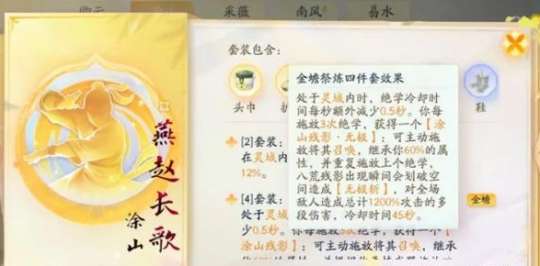 采薇 南风 易水
燕赵长歌
涂山
套装包含：
头巾
鞋
金蟾祭炼四件套效果
处于灵域内时，绝学冷却时
间每秒额外减少0.5秒。你每
施放3次绝学，获得一个【涂
山残影：无极】：可主动施
放将其召唤，继承你60%的属
性，并重复施放上个绝学，
八荒残影出现瞬间会划破空
间造成【无极斩】，对全场
敌人造成总计1200%攻击的多
段伤害，冷却时间45秒。
[2]套装：
在灵域
12%。
[4]套装：
处于灵域
少0.5秒。你每施放3次绝学，获得一个【涂
山残影：无极】：可主动施放将其召唤，继承
金蟾